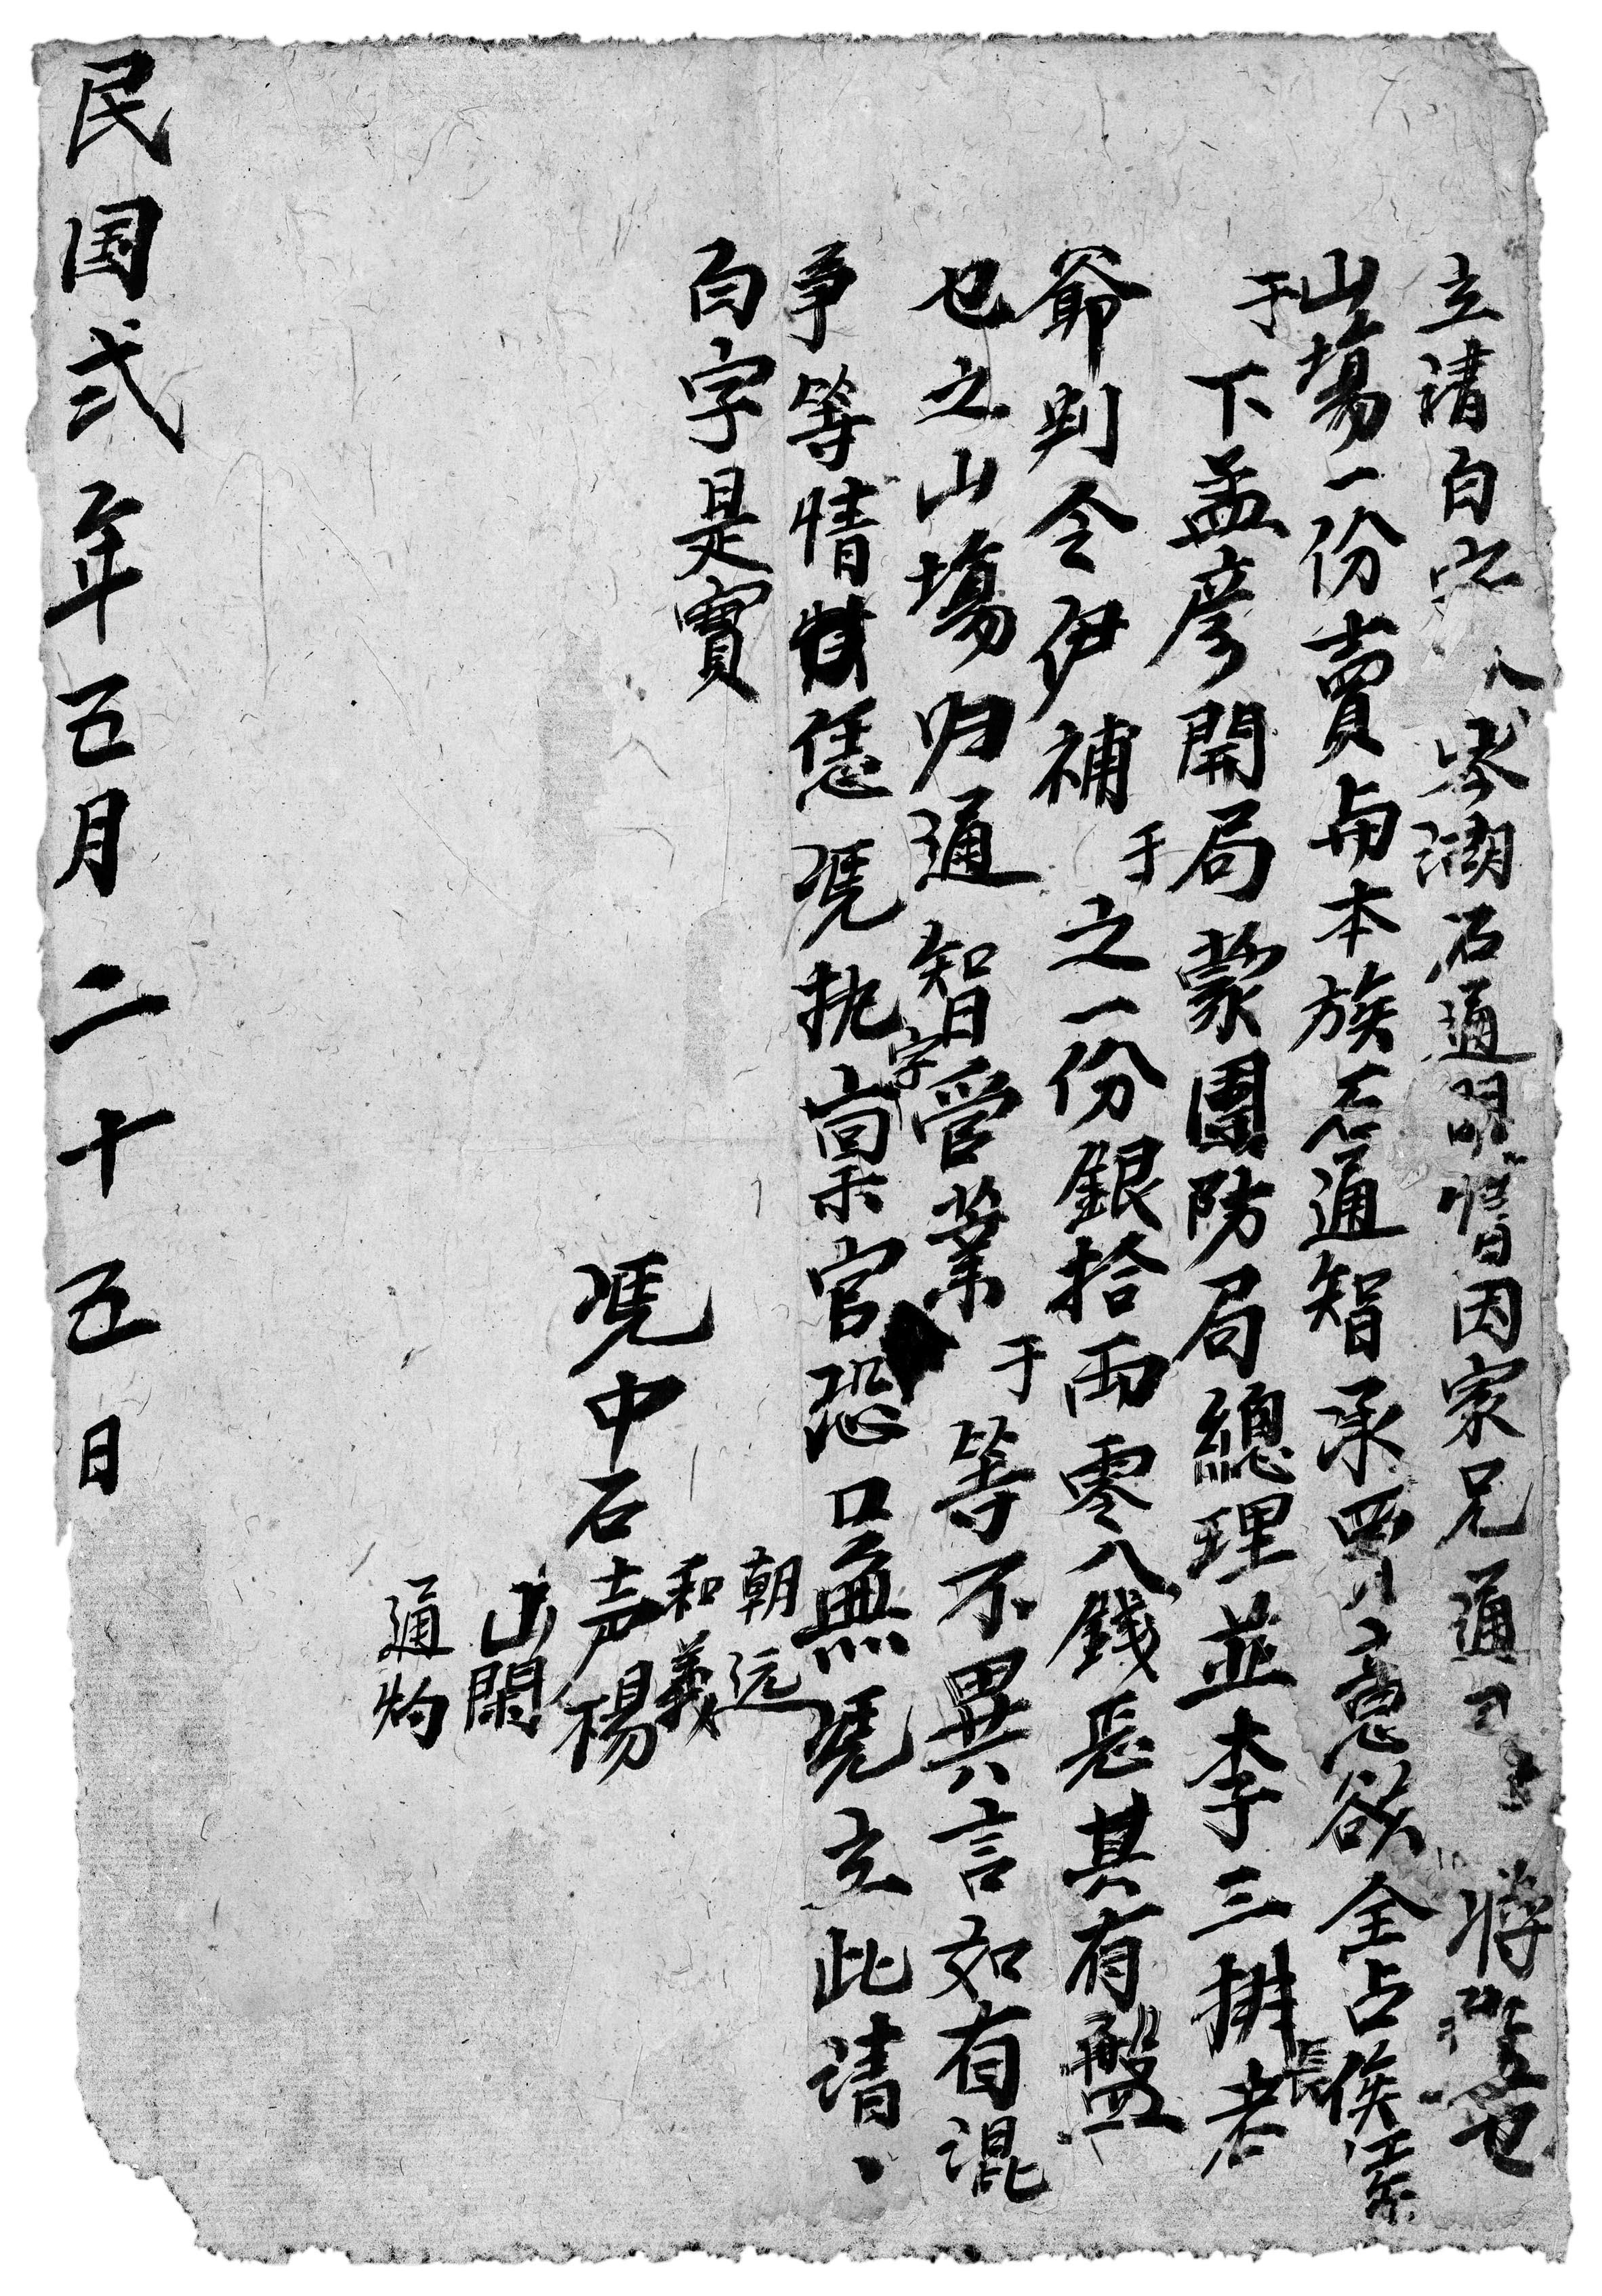 立請白字人岑湖石通明情因家兄通　將　也
山塲一份賣与本族石通智承買意欲全占俟案
于下孟彦開局蒙團防局總理並李三排長老
爺判令伊補于之一份銀拾両零八錢其有盤
也之山塲归通智管業于等不異言如有混
争等情恁凭执字禀官恐口無凭立此請
白字是實
朝远
和義
凭中石声楊
山閑
通灼
民国弍年五月二十五日